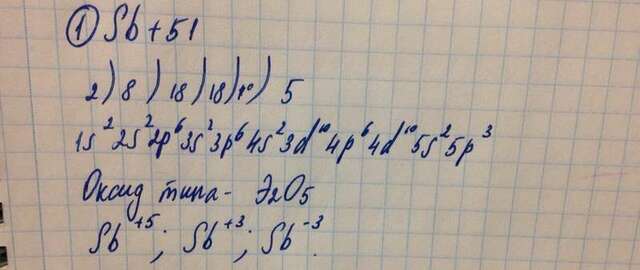 ① Sb +51
2) 8 ) 18) 18) ) 5
1s² 2s² 2p⁶ 3s² 3p⁶ 4s² 3d¹⁰ 4p⁶ 4d¹⁰ 5s² 5p³
Оксид типа - Э₂O₅
Sb⁺⁵; Sb⁺³; Sb⁻³.